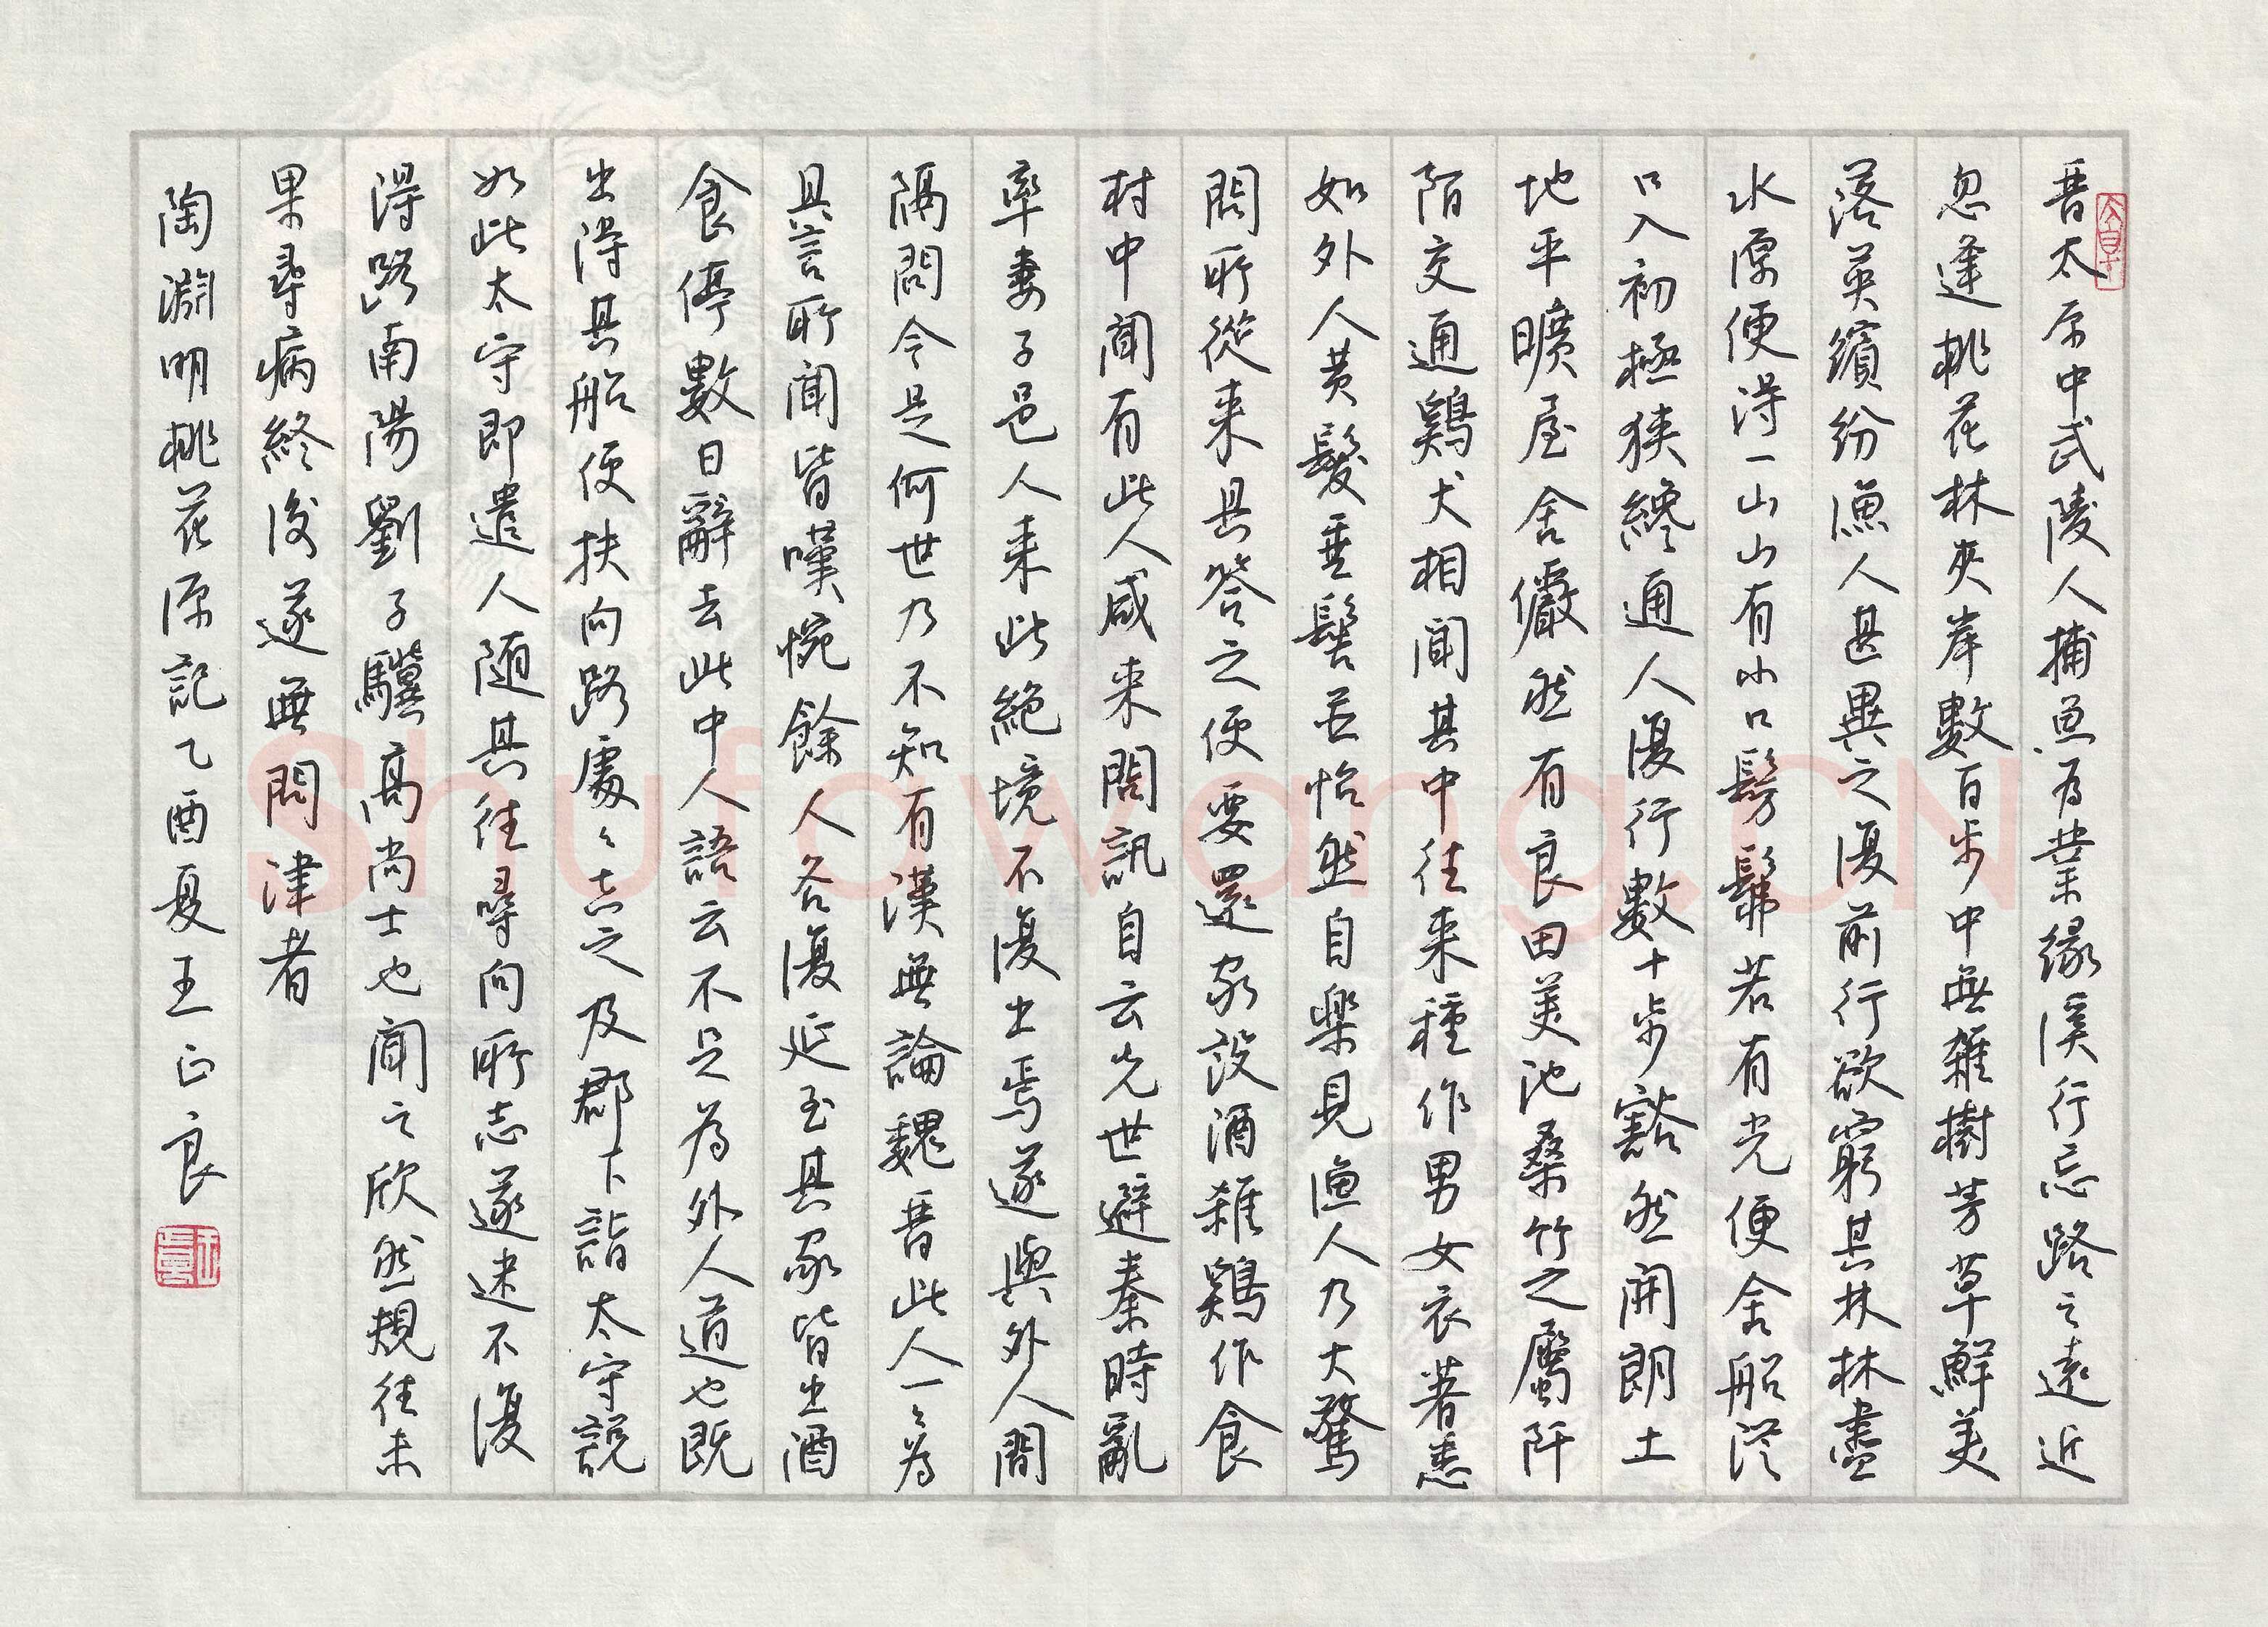 晋太原中武陵人捕魚為業緣溪行忘路之遠近
忽逢桃花林夾岸數百步中無雜樹芳草鮮美
落英繽紛漁人甚異之復前行欲窮其林林盡
水源便得一山山有小口髣髴若有光便舍船從
口入初極狹纔通人復行數十步豁然開朗土
地平曠屋舍儼然有良田美池桑竹之屬阡
陌交通鷄犬相聞其中往来種作男女衣著悉
如外人黄髮垂髫並怡然自樂見漁人乃大驚
問所從来具答之便要還家設酒殺鷄作食
村中聞有此人咸来問訊自云先世避秦時亂
率妻子邑人来此絶境不復出焉遂與外人間
隔問今是何世乃不知有漢無論魏晋此人一々為
具言所聞皆嘆惋餘人各復延至其家皆出酒
食停數日辭去此中人語云不足為外人道也既
出得其船便扶向路處々志之及郡下詣太守説
如此太守即遣人随其往尋向所志遂迷不復
得路南陽劉子驥高尚士也聞之欣然規往未
果尋病終後遂無問津者
陶淵明桃花源記乙酉夏王正良
Shufawang.CN